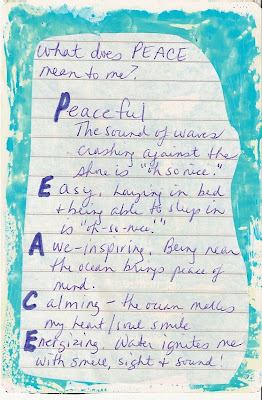 What does PEACE
mean to me?
Peaceful
The sound of waves
crashing against the
shore is "oh so nice."
Easy. Laying in bed
& being able to sleep in
is "oh-so-nice."
Awe-inspiring. Being near
the ocean brings peace of
mind.
Calming - the ocean makes
my heart/soul smile
Energizing. Water ignites me
with smell, sight & sound!